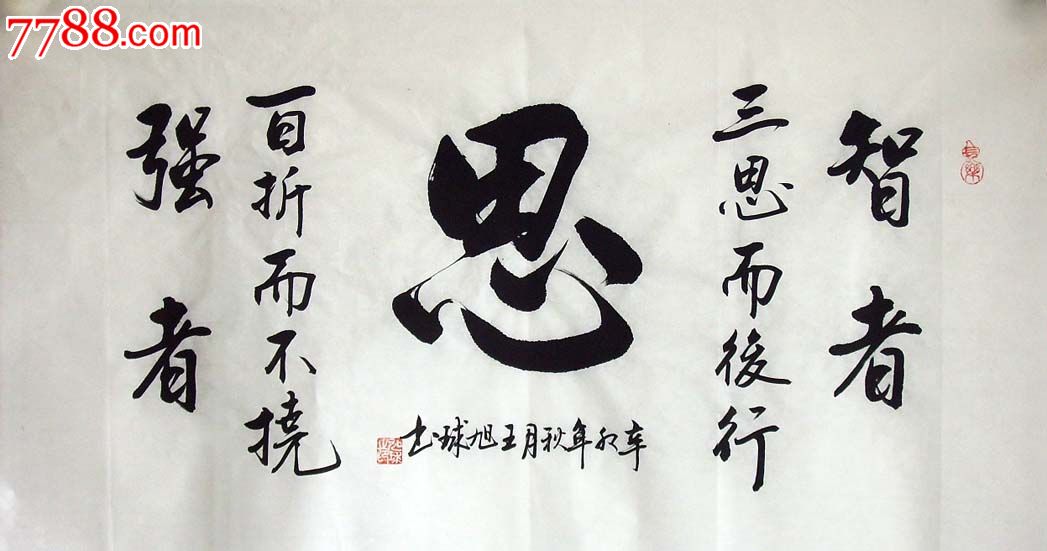 7788.com
智者
三思而後行
思
辛卯年秋月王旭球书
百折而不撓
强者